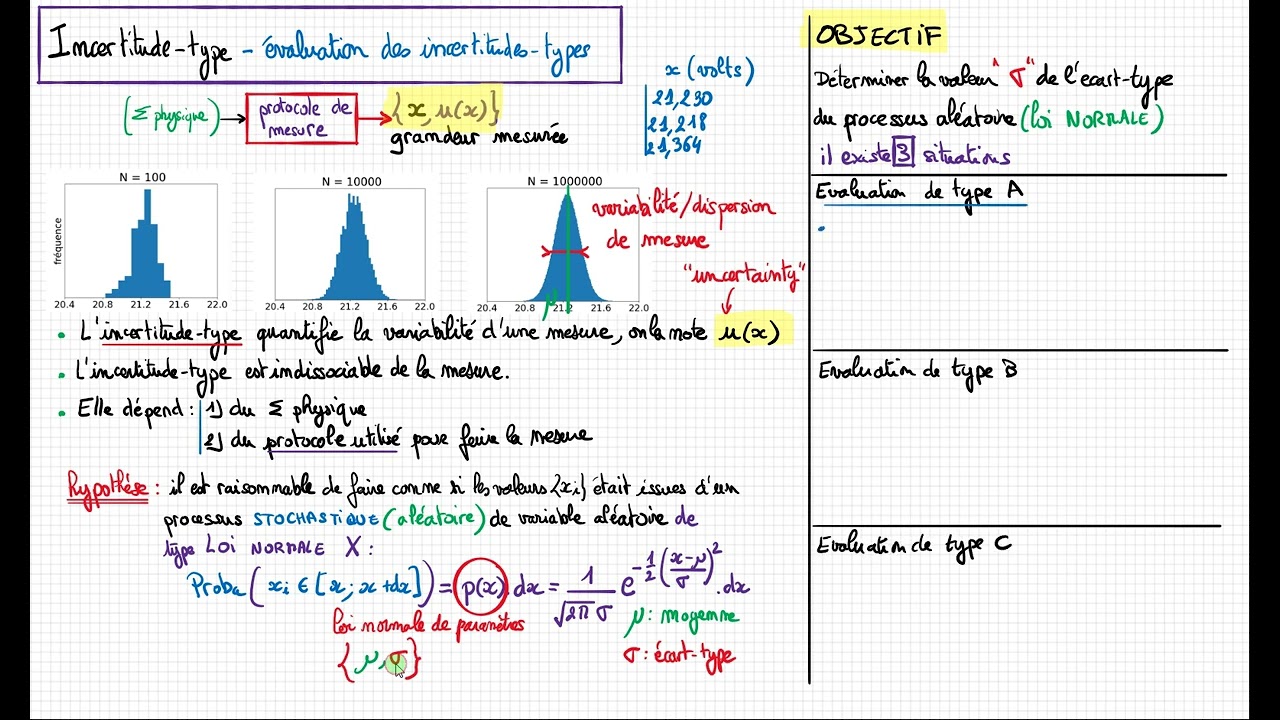 Incertitude-type - évaluation des incertitudes-types
(Σ physique) → protocole de mesure → {x, u(x)}
grandeur mesurée
x (volts)
21,230
21,218
21,364
N = 100
N = 10000
N = 1000000
fréquence
20.4 20.8 21.2 21.6 22.0
20.4 20.8 21.2 21.6 22.0
20.4 20.8 21.2 21.6 22.0
μ
variabilité/dispersion
de mesure
"uncertainty"
• L'incertitude-type quantifie la variabilité d'une mesure, on la note u(x)
• L'incertitude-type est indissociable de la mesure.
• Elle dépend : 1) du Σ physique
2) du protocole utilisé pour faire la mesure
hypothèse : il est raisonnable de faire comme si les valeurs {xi} était issues d'un
processus STOCHASTIQUE (aléatoire) de variable aléatoire de
type LOI NORMALE X :
Proba(xi ∈ [x; x+dx]) = p(x).dx = 1/(√2π σ) e^(-1/2((x-μ)/σ)^2).dx
loi normale de paramètres
{μ, σ}
μ : moyenne
σ : écart-type
OBJECTIF
Déterminer la valeur "σ" de l'écart-type
du processus aléatoire (loi NORMALE)
il existe 3 situations
Evaluation de type A
Evaluation de type B
Evaluation de type C